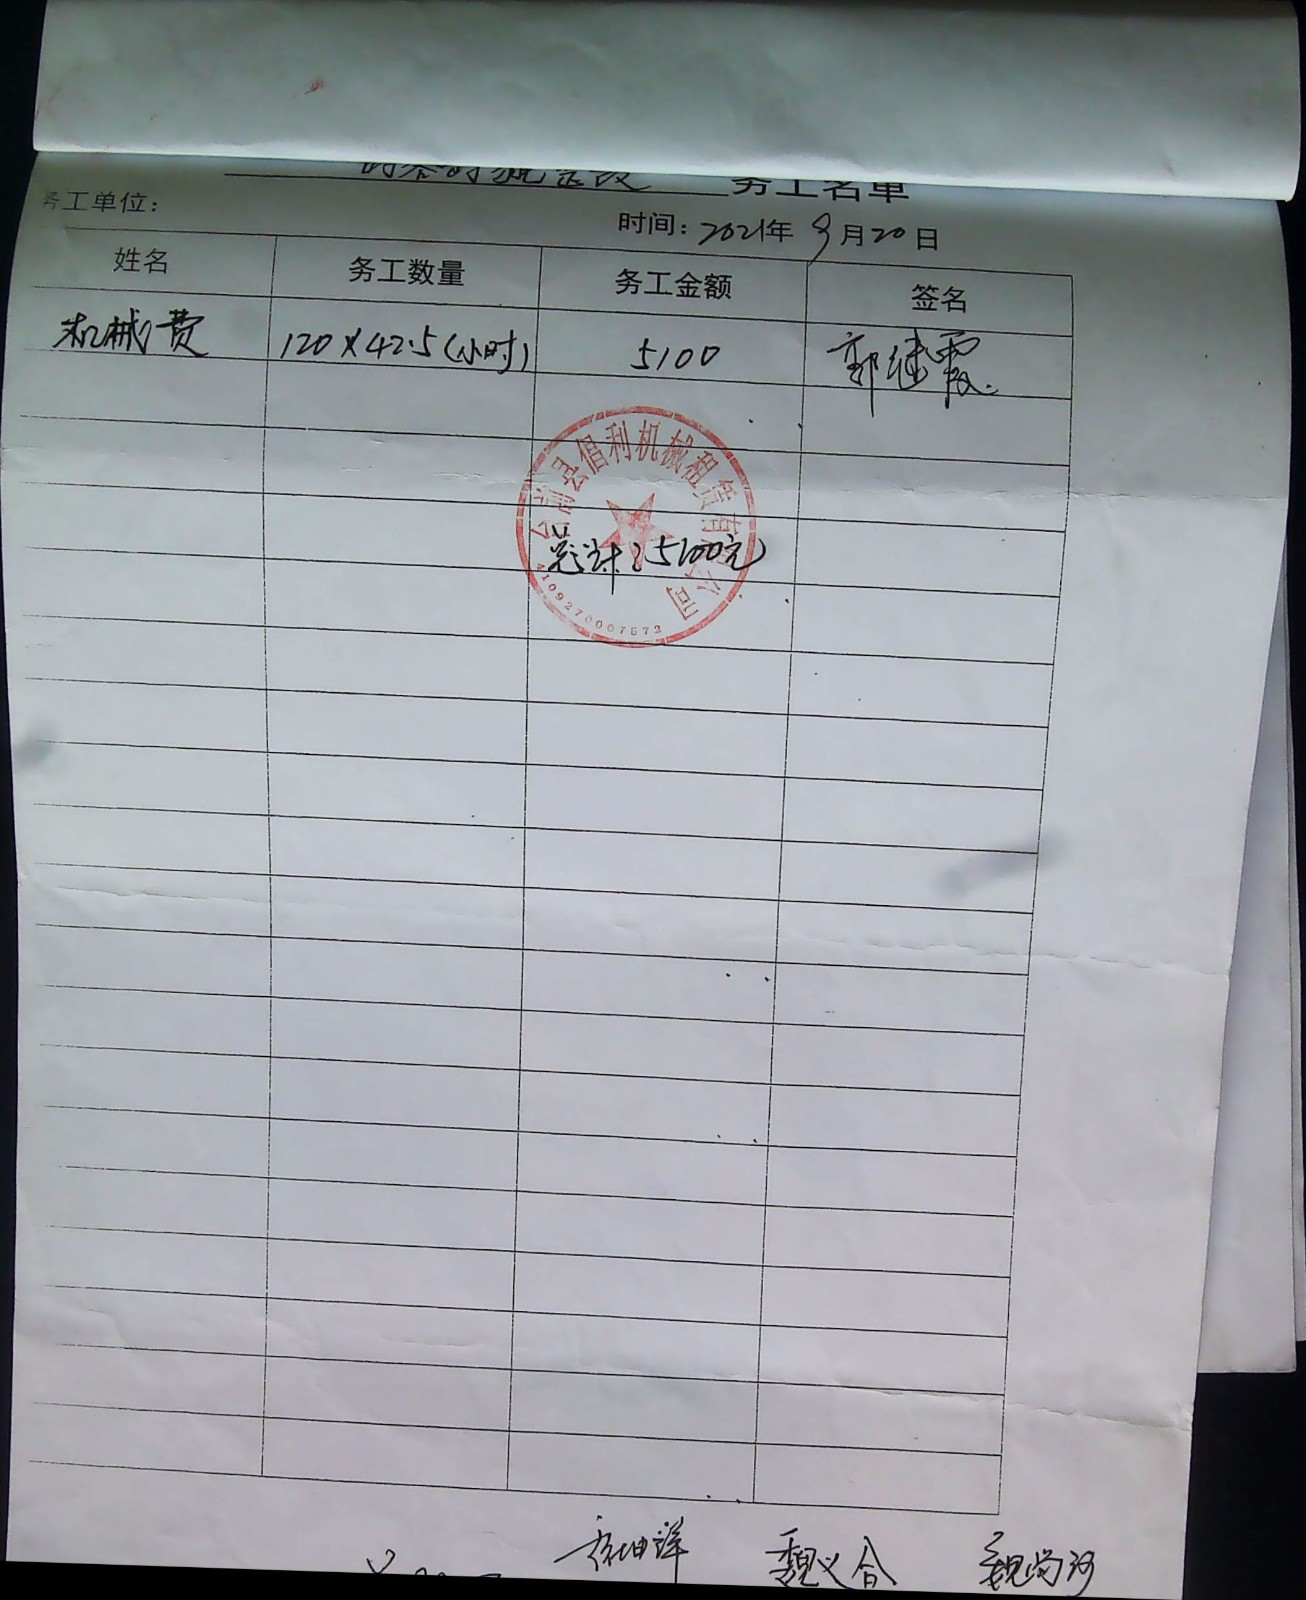 务工名单
务工单位：
时间：2021年9月20日
姓名 务工数量 务工金额 签名
机械费 120×42.5(小时) 5100 郭继霞
台前县倡利机械租赁有限公司
总计：5100元
4109270007572
魏义合 魏尚河